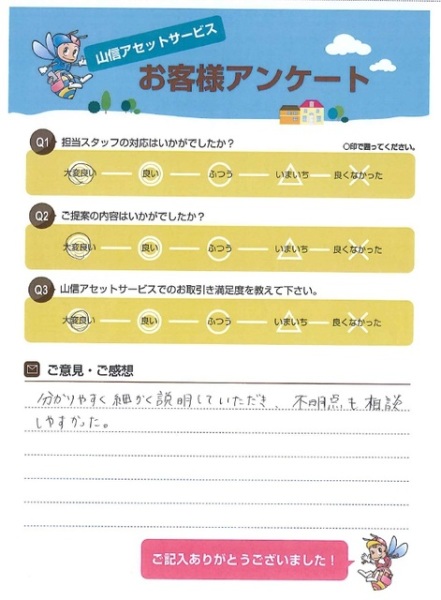 山信アセットサービス
お客様アンケート
Q1 担当スタッフの対応はいかがでしたか？ ○印で囲ってください。
大変良い 良い ふつう いまいち 良くなかった
Q2 ご提案の内容はいかがでしたか？
大変良い 良い ふつう いまいち 良くなかった
Q3 山信アセットサービスでのお取引き満足度を教えて下さい。
大変良い 良い ふつう いまいち 良くなかった
ご意見・ご感想
分かりやすく細かく説明していただき、不明点も相談
しやすかった。
ご記入ありがとうございました！